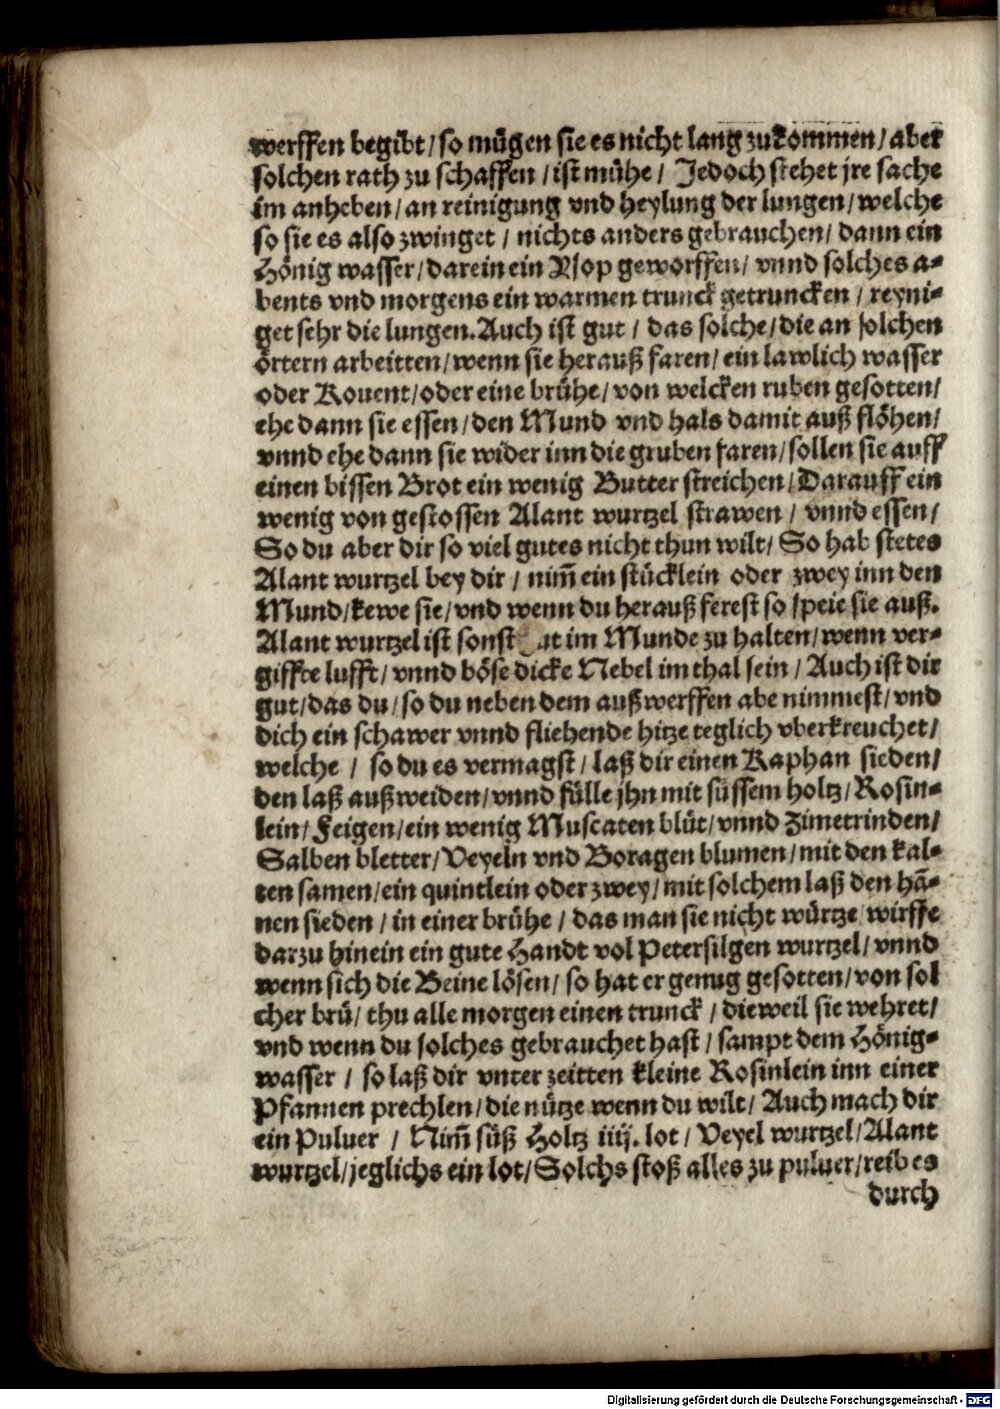 werffen begibt / so mügen sie es nicht lang zukommen / aber
solchen rath zu schaffen / ist mühe / Jedoch stehet jre sache
im anheben / an reinigung vnd heylung der lungen / welche
so sie es also zwinget / nichts anders gebrauchen / dann ein
Hönig wasser / darein ein Ysop geworffen / vnnd solches a-
bents vnd morgens ein warmen trunck getruncken / reyni-
get sehr die lungen. Auch ist gut / das solche / die an solchen
örtern arbeitten / wenn sie herauß faren / ein lawlich wasser
oder Kouent / oder eine brühe / von welcken ruben gesotten /
ehe dann sie essen / den Mund vnd hals damit auß flöhen /
vnnd ehe dann sie wider inn die gruben faren / sollen sie auff
einen bissen Brot ein wenig Butter streichen / Darauff ein
wenig von gestossen Alant wurtzel strawen / vnnd essen /
So du aber dir so viel gutes nicht thun wilt / So hab stetes
Alant wurtzel bey dir / nim̃ ein stücklein oder zwey inn den
Mund / kewe sie / vnd wenn du herauß ferest so speie sie auß.
Alant wurtzel ist sonst im Munde zu halten / wenn ver-
giffte lufft / vnnd böse dicke Nebel im thal sein / Auch ist dir
gut / das du / so du neben dem außwerffen abe nimmest / vnd
dich ein schawer vnnd fliehende hitze teglich vberkreuchet /
welche / so du es vermagst / laß dir einen Kaphan sieden /
den laß außweiden / vnnd fülle jhn mit süssem holtz / Rosin-
lein / Feigen / ein wenig Muscaten blüt / vnnd Zimetrinden /
Salben bletter / Veyeln vnd Boragen blumen / mit den kal-
ten samen / ein quintlein oder zwey / mit solchem laß den hã-
nen sieden / in einer brühe / das man sie nicht würtze wirffe
darzu hinein ein gute Handt vol Petersilgen wurtzel / vnnd
wenn sich die Beine lösen / so hat er genug gesotten / von sol
cher brü / thu alle morgen einen trunck / dieweil sie wehret /
vnd wenn du solches gebrauchet hast / sampt dem Hönig-
wasser / so laß dir vnter zeitten kleine Rosinlein inn einer
Pfannen prechlen / die nütze wenn du wilt / Auch mach dir
ein Puluer / Nim̃ süß Holtz iiij. lot / Veyel wurtzel / Alant
wurtzel / jeglichs ein lot / Solchs stoß alles zu puluer / reib es
durch
Digitalisierung gefördert durch die Deutsche Forschungsgemeinschaft - DFG